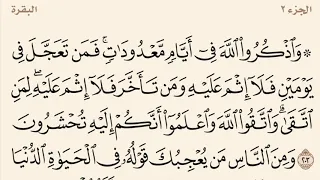 الجزء ٢ البقرة
۞ وَٱذْكُرُوا۟ ٱللَّهَ فِىٓ أَيَّامٍ مَّعْدُودَٰتٍ ۚ فَمَن تَعَجَّلَ فِى
يَوْمَيْنِ فَلَآ إِثْمَ عَلَيْهِ وَمَن تَأَخَّرَ فَلَآ إِثْمَ عَلَيْهِ ۚ لِمَنِ
ٱتَّقَىٰ ۗ وَٱتَّقُوا۟ ٱللَّهَ وَٱعْلَمُوٓا۟ أَنَّكُمْ إِلَيْهِ تُحْشَرُونَ
٢٠٣ وَمِنَ ٱلنَّاسِ مَن يُعْجِبُكَ قَوْلُهُۥ فِى ٱلْحَيَوٰةِ ٱلدُّنْيَا